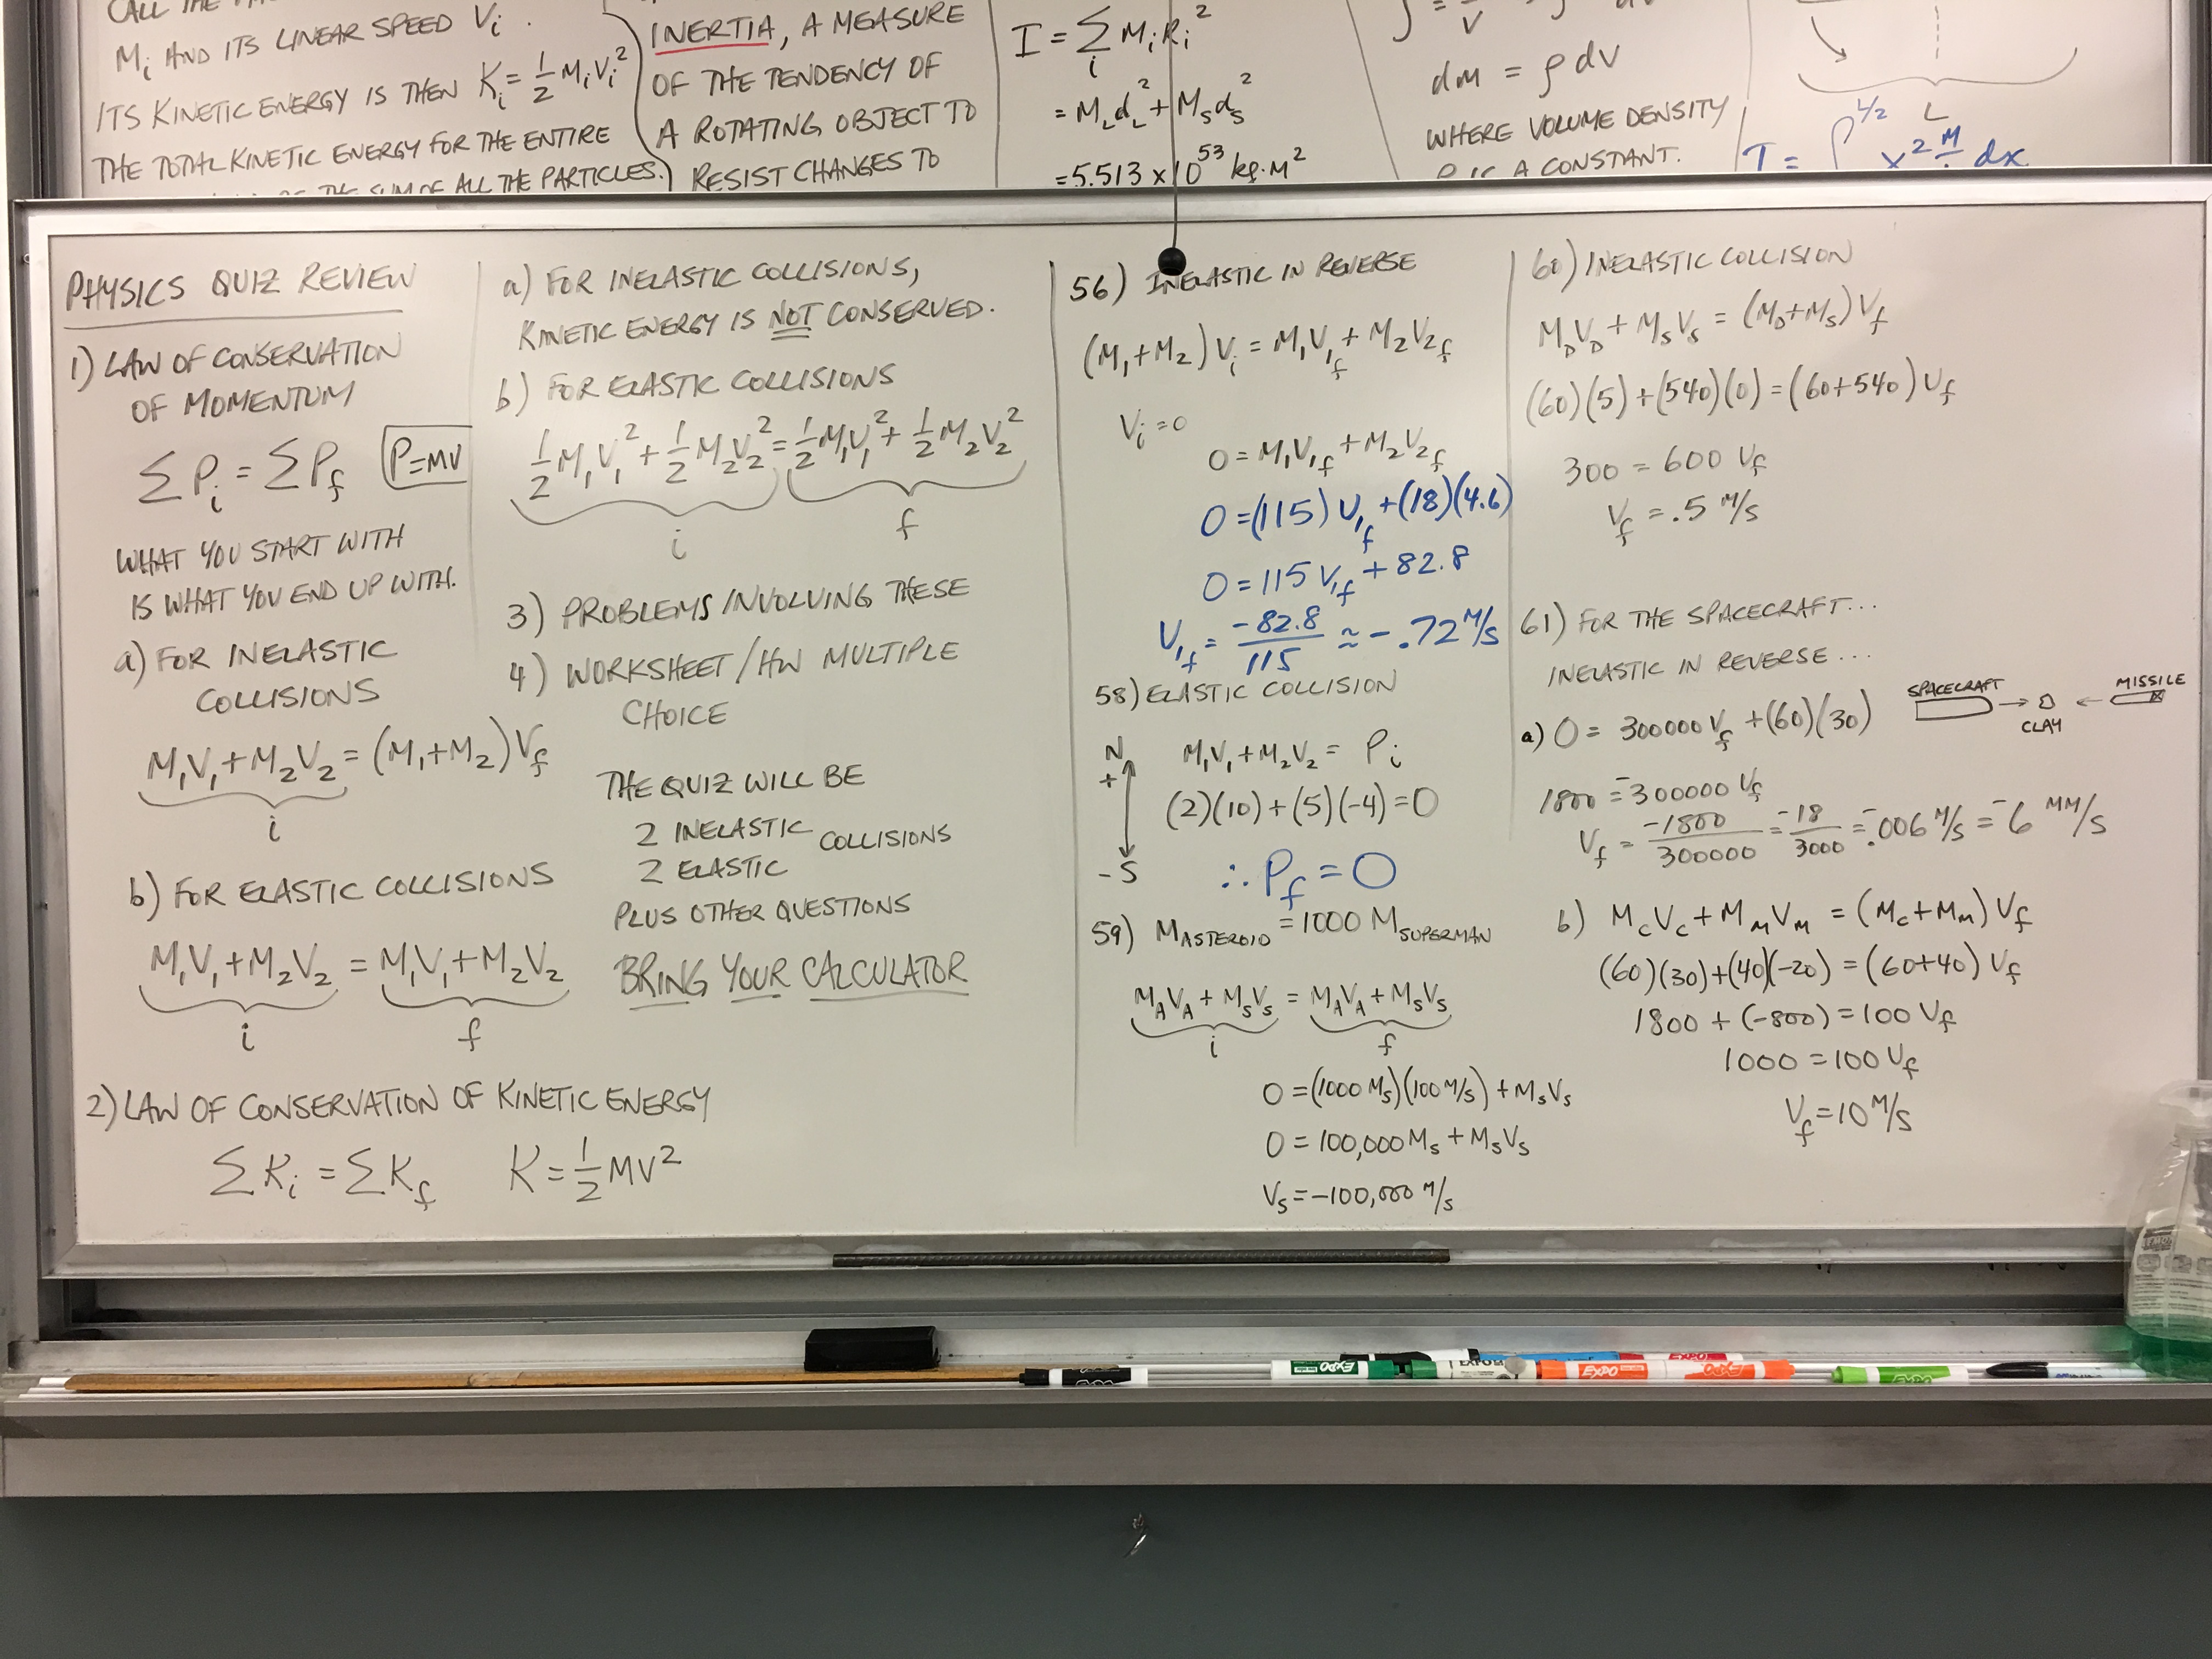 M_i AND ITS LINEAR SPEED V_i.
ITS KINETIC ENERGY IS THEN K_i = 1/2 M_i V_i²
THE TOTAL KINETIC ENERGY FOR THE ENTIRE
THE SUM OF ALL THE PARTICLES.
INERTIA, A MEASURE
OF THE TENDENCY OF
A ROTATING OBJECT TO
RESIST CHANGES TO
I = Σ_i M_i R_i²
= M_L d_L² + M_S d_S²
= 5.513 x 10^53 kg·M²
dM = ρ dV
WHERE VOLUME DENSITY
ρ IS A CONSTANT.
L
x² M dx
PHYSICS QUIZ REVIEW
1) LAW OF CONSERVATION
OF MOMENTUM
ΣP_i = ΣP_f P=MV
WHAT YOU START WITH
IS WHAT YOU END UP WITH.
a) FOR INELASTIC
COLLISIONS
M₁V₁ + M₂V₂ = (M₁+M₂)V_f
i
b) FOR ELASTIC COLLISIONS
M₁V₁ + M₂V₂ = M₁V₁ + M₂V₂
i f
2) LAW OF CONSERVATION OF KINETIC ENERGY
ΣK_i = ΣK_f K = 1/2 MV²
a) FOR INELASTIC COLLISIONS,
KINETIC ENERGY IS NOT CONSERVED.
b) FOR ELASTIC COLLISIONS
1/2 M₁V₁² + 1/2 M₂V₂² = 1/2 M₁V₁² + 1/2 M₂V₂²
i f
3) PROBLEMS INVOLVING THESE
4) WORKSHEET/HW MULTIPLE
CHOICE
THE QUIZ WILL BE
2 INELASTIC COLLISIONS
2 ELASTIC
PLUS OTHER QUESTIONS
BRING YOUR CALCULATOR
56) INELASTIC IN REVERSE
(M₁+M₂)V_i = M₁V₁f + M₂V₂f
V_i = 0
0 = M₁V₁f + M₂V₂f
0 = (115)V₁f + (18)(4.6)
0 = 115 V₁f + 82.8
V₁f = -82.8/115 ≈ -.72 M/S
58) ELASTIC COLLISION
N
+
- S
M₁V₁ + M₂V₂ = P_i
(2)(10) + (5)(-4) = 0
∴ P_f = 0
59) M_ASTEROID = 1000 M_SUPERMAN
M_A V_A + M_S V_S = M_A V_A + M_S V_S
i f
0 = (1000 M_S)(100 M/S) + M_S V_S
0 = 100,000 M_S + M_S V_S
V_S = -100,000 M/S
60) INELASTIC COLLISION
M_D V_D + M_S V_S = (M_D + M_S) V_f
(60)(5) + (540)(0) = (60+540) V_f
300 = 600 V_f
V_f = .5 M/S
61) FOR THE SPACECRAFT...
INELASTIC IN REVERSE...
SPACECRAFT → CLAY ← MISSILE
a) 0 = 300000 V_f + (60)(30)
1800 = -300000 V_f
V_f = -1800/300000 = -18/3000 = -.006 M/S = -6 MM/S
b) M_C V_C + M_M V_M = (M_C + M_M) V_f
(60)(30) + (40)(-20) = (60+40) V_f
1800 + (-800) = 100 V_f
1000 = 100 V_f
V_f = 10 M/S
EXPO
EXPO
EXPO
EXPO
EXPO
EXPO